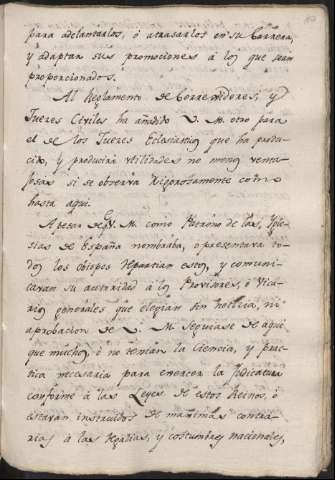 para adelantarlos, ó atrasarlos en su Carrera,
y adaptar sus promociones à los que sean
proporcionados.
Al Reglamento de Corregidores, y
Jueces Civiles ha añadido V. M. otro para
el de los Jueces Eclesiasticos que ha produ-
cido, y producirá utilidades no menos venta-
josas si se observa rigorosamente como
hasta aqui.
A pesar de q.e V. M. como Patrono de las Igle-
sias de España nombraba, ó presentava to-
dos los obispos repartian estos, y comuni-
cavan su autoridad à los Provisores, ó Vica-
rios generales que elegian sin noticia, ni
aprobacion de V. M. Seguiase de aqui
que muchos, ó no tenian la Ciencia, y prac-
tica necesaria para exercer la Judicatura
conforme à las Leyes de estos Reinos, ó
estavan instruidos de maximas contra-
rias à las Regalias, y costumbres nacionales,